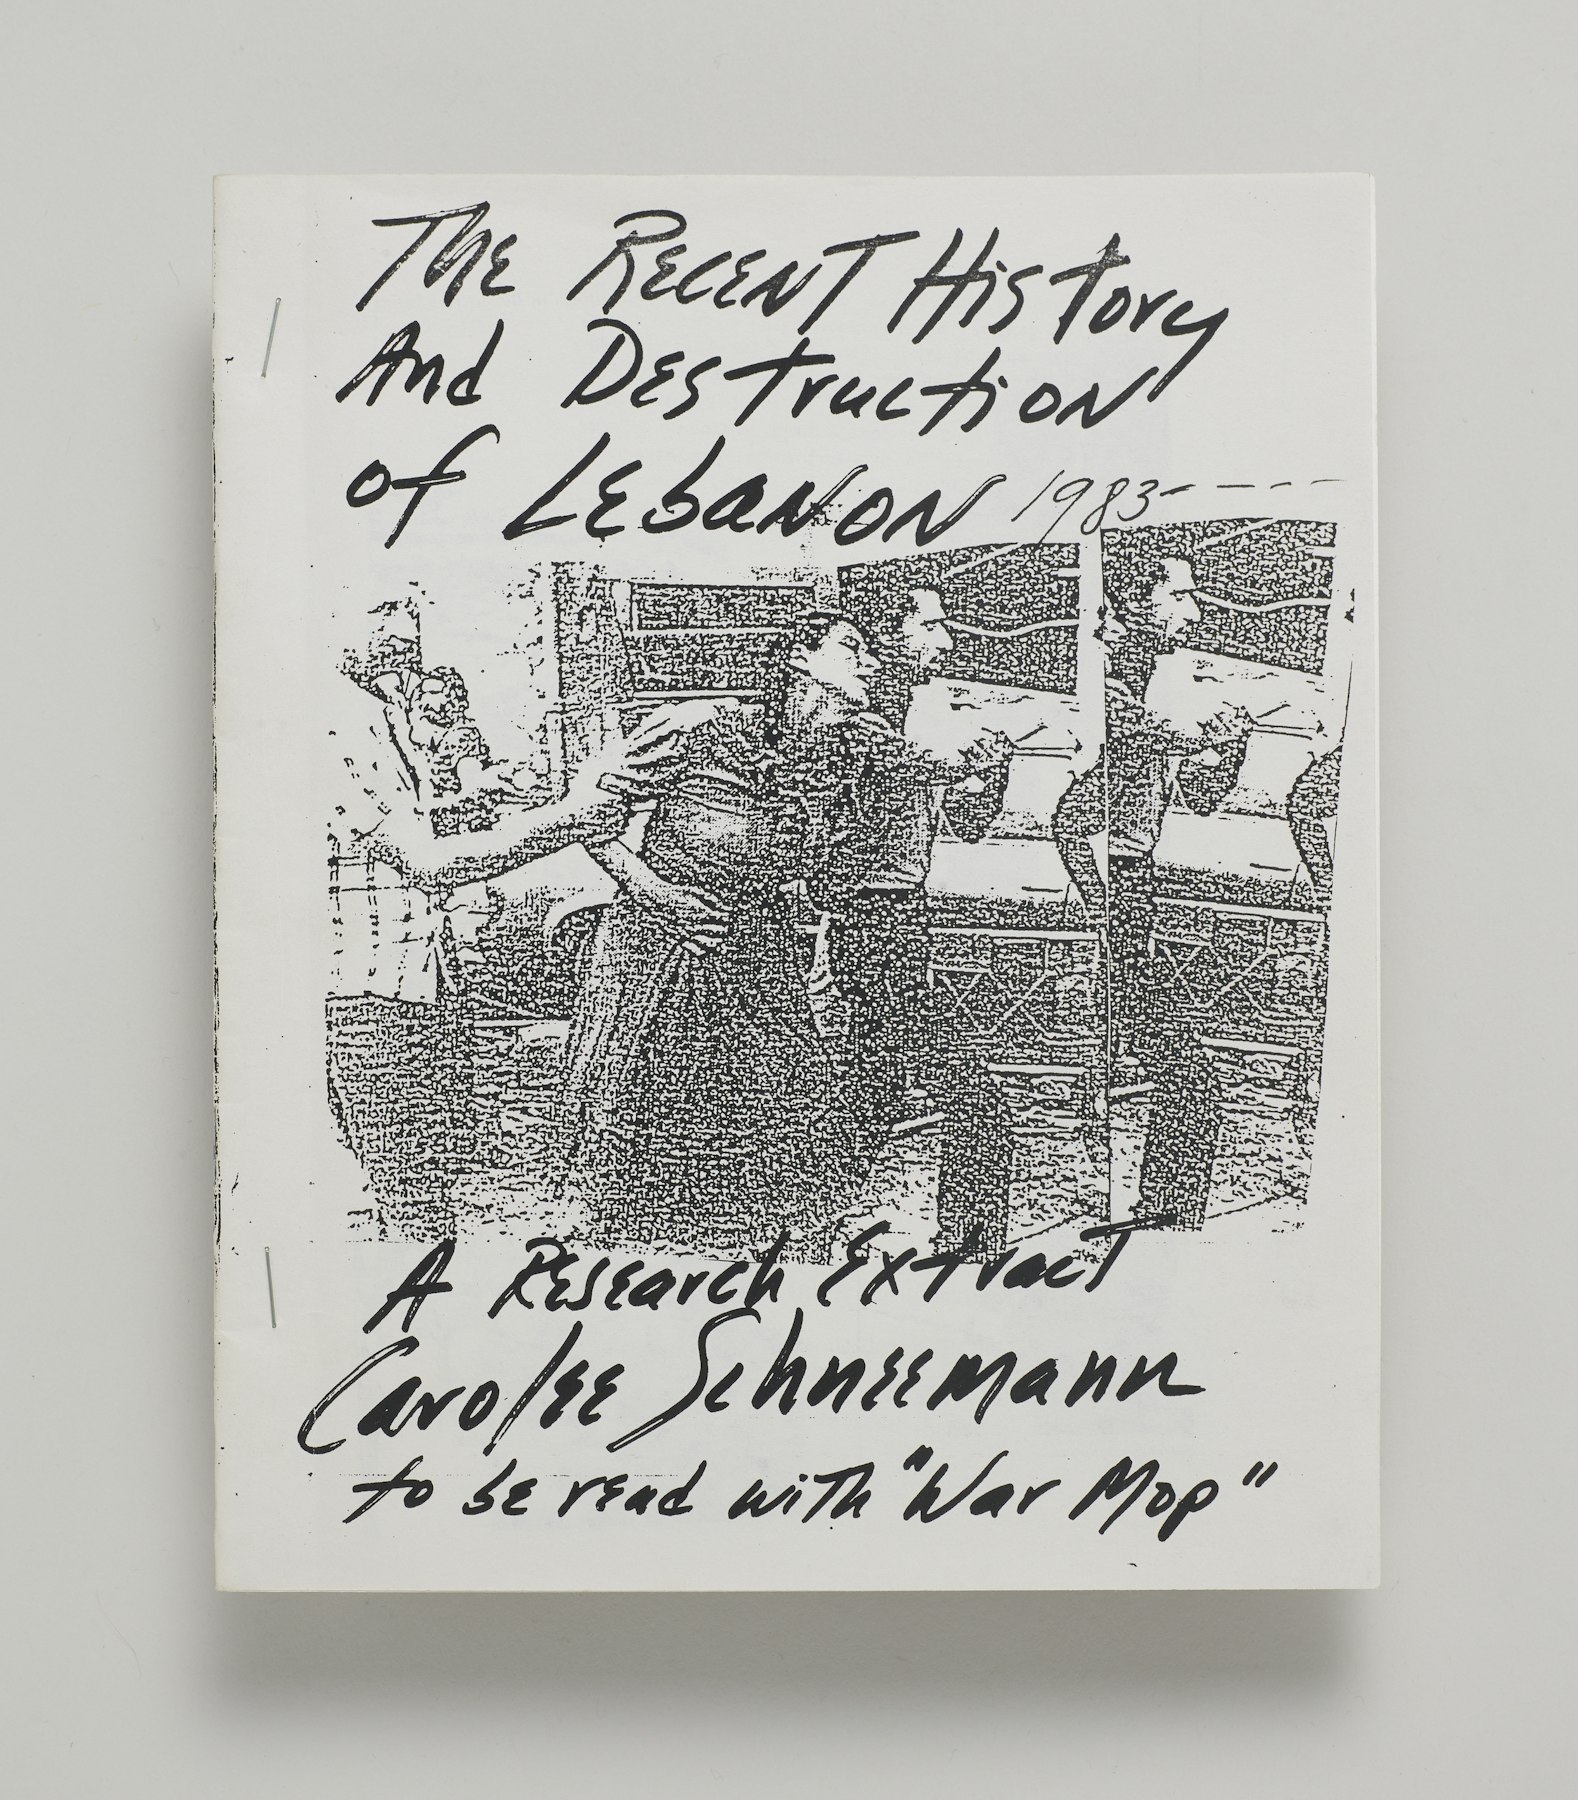 The Recent History
And Destruction
of Lebanon 1983- - - -
A Research Extract
Carolee Schneemann
to be read with "War Mop"